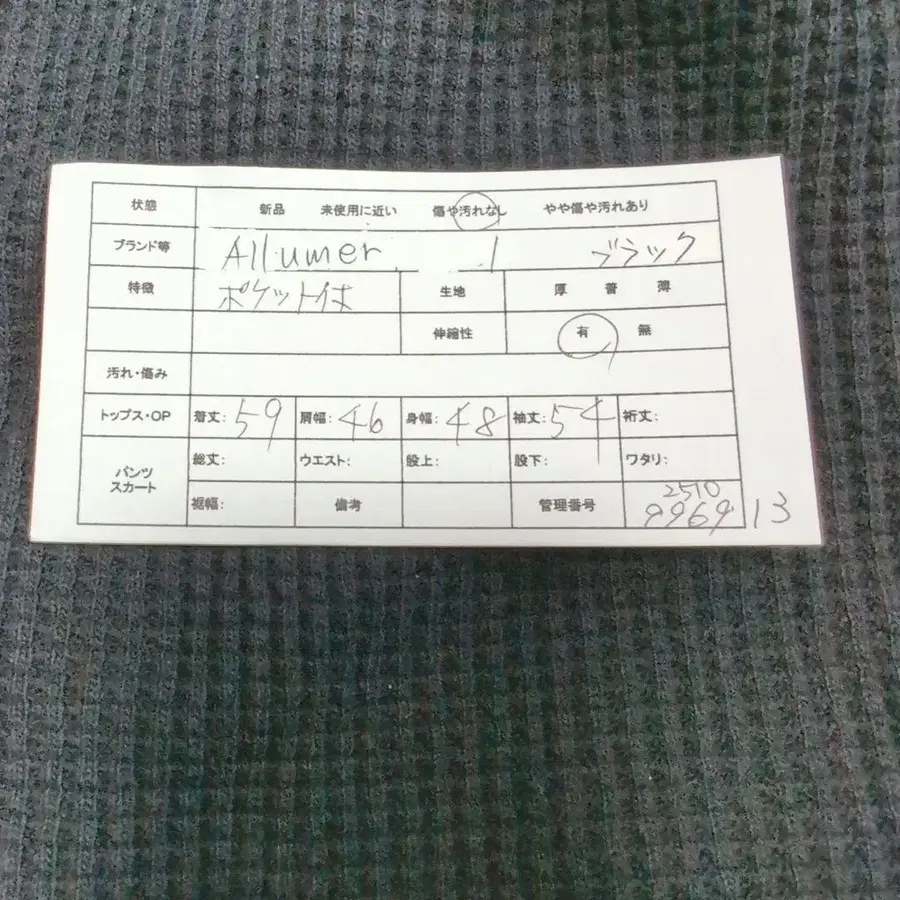 状態 新品 未使用に近い 傷や汚れなし やや傷や汚れあり
ブランド等 Allumer 1 ブラック
特徴 ポケット付 生地 厚 普 薄
伸縮性 有 無
汚れ・傷み
トップス・OP 着丈: 59 肩幅: 46 身幅: 48 袖丈: 54 裄丈:
パンツ スカート 総丈: ウエスト: 股上: 股下: ワタリ:
裾幅: 備考 管理番号 2510
9969 13